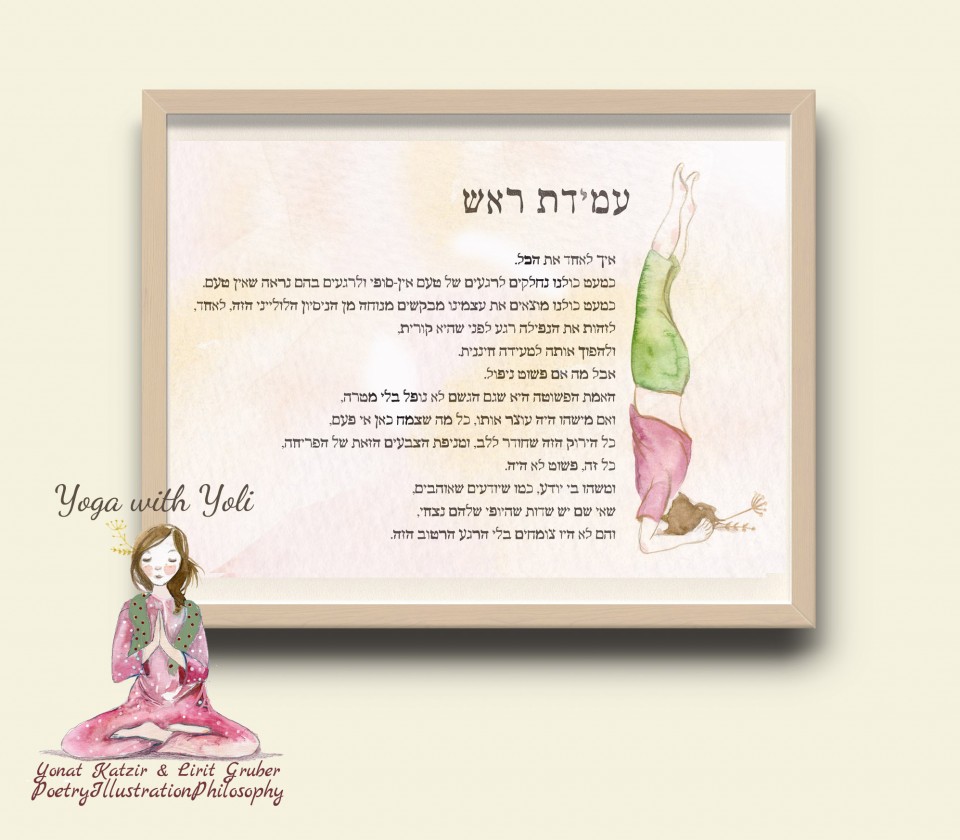 עמידת ראש
איך לאחד את הכל.
כמעט כולנו נחלקים לרגעים של טעם אין-סופי ולרגעים בהם נראה שאין טעם.
כמעט כולנו מוצאים את עצמינו מבקשים מנוחה מן הניסיון הלולייני הזה, לאחד,
לזהות את הנפילה רגע לפני שהיא קורית,
ולהפוך אותה למעידה חיננית.
אבל מה אם פשוט ניפול.
האמת הפשוטה היא שגם הגשם לא נופל בלי מטרה,
ואם מישהו היה עוצר אותו, כל מה שצמח כאן אי פעם,
כל הירוק הזה שחודר ללב, ומניפת הצבעים הזאת של הפריחה,
כל זה, פשוט לא היה.
ומשהו בי יודע, כמו שיודעים שאוהבים,
שאי שם יש שדות שהיופי שלהם נצחי,
והם לא היו צומחים בלי הרגע הרטוב הזה.
Yoga with Yoli
Yonat Katzir & Lirit Gruber
PoetryIllustrationPhilosophy